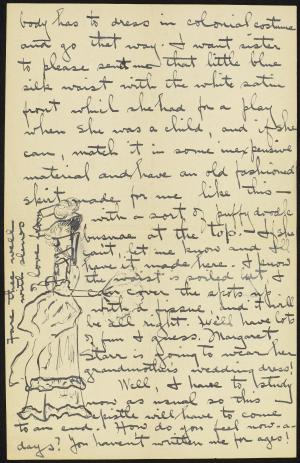 body has to dress in colonial costume
and go that way. I want sister
to please send me that little blue
silk waist with the white satin
front which she had for a play
when she was a child, and if she
can, match it in some inexpensive
material and have an old fashioned
skirt made for me like this —
with a sort of puffy
at the top. — If she
can't, let me know and I'll
have it made here. I know
the waist is soiled but I
can cover the spots up
with a, and it will
be all right. We'll have lots
of fun I guess. Margaret
Starr is going to wear her
grandmother's wedding dress!
Well, I have to study
now as usual so this
epistle will have to come
to an end. How do you feel now-a-
days? You haven't written me for ages!
well
with
of love